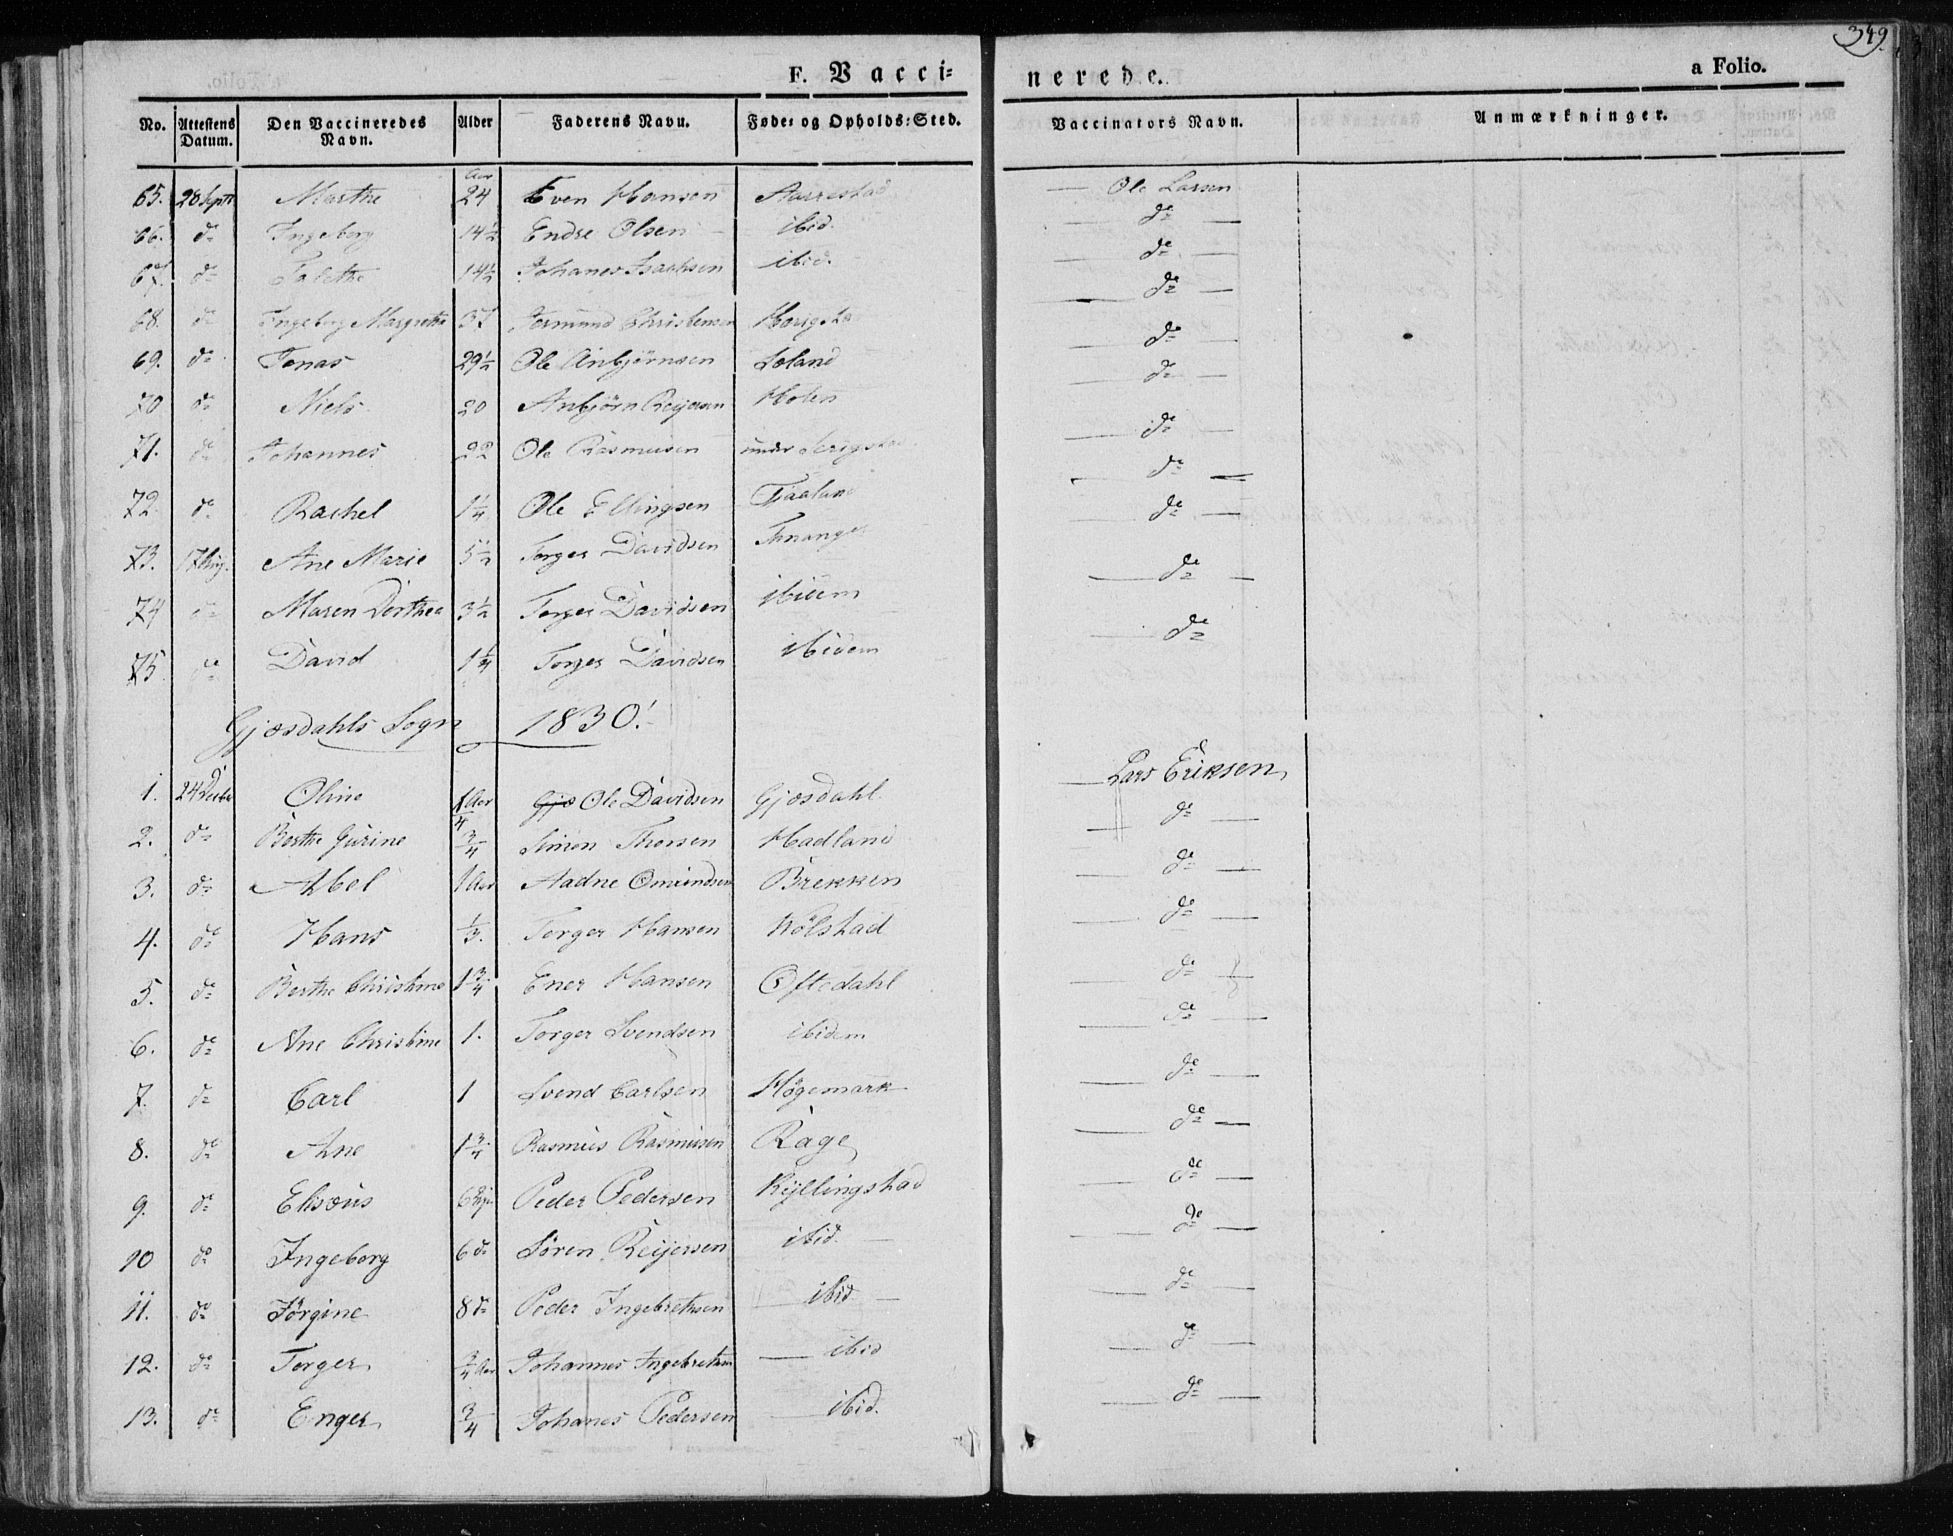 349.
F. Vacci=
nerede.
a Folio.
No. Attestens Datum. Den Vaccineredes Navn. Alder Faderens Navn. Føde= og Opholds=Sted. Vaccinators Navn. Anmærkninger.
65. 28 Septr Marthe Aar 24 Even Hansen Aarrestad — Ole Larsen
66. do Ingeborg 14½ Endre Olsen — ibid. — do —
67. do Talethe 14½ Johanes Isachsen ibid. — do —
68. do Ingeborg Margrethe 37 Christensen — do —
69. do Jonas 29½ Ole Anbjörnsen Loland — do —
70 do Niels 20 Anbjörn Reijersen Holen — do —
71. do Johannes 22 Ole Rasmusen under — do —
72. do Rachel 1¼ Ole Ellingsen — do —
73. 17 Ane Marie 5½ Torger Davidsen — do —
74 do Maren Dorthea 3½ Torger Davidsen ibidem — do —
75 do David 1¼ Torger Davidsen ibidem — do
Gjæsdahls Sogn 1830!
1. 24 Decbr Oline ¼ Aar Ole Davidsen Gjæsdahl. — Lars Eriksen
2. do Berthe Gurine ¾ Simon Thorsen Hadland — do —
3. do Abel 1 Aar Aadne Omundsen Brekken — do —
4. do Hans ⅓. Torger Hansen Kölstad — do —
5. do Berthe Christine 1¾ Ener Hansen Oftedahl — do —
6. do Ane Christine 1. Torger Svendsen ibidem — do —
7. do Carl 1 Svend Carlsen Högemark — do —
8. do Ane 1¾ Rasmus Rasmusen Rage — do —
9. do Elisæus 6 Peder Pedersen Kyllingstad — do —
10 do Ingeborg 6 do Sören Reijersen ibid. — do —
11. do Jörgine 8 do Peder Ingebretsen — ibid — — do —
12. do Torger ¾ Aar Johannes Ingebretsen — ibid — do —
13. do Enger ¾ Johanes Pedersen — ibid. — do —